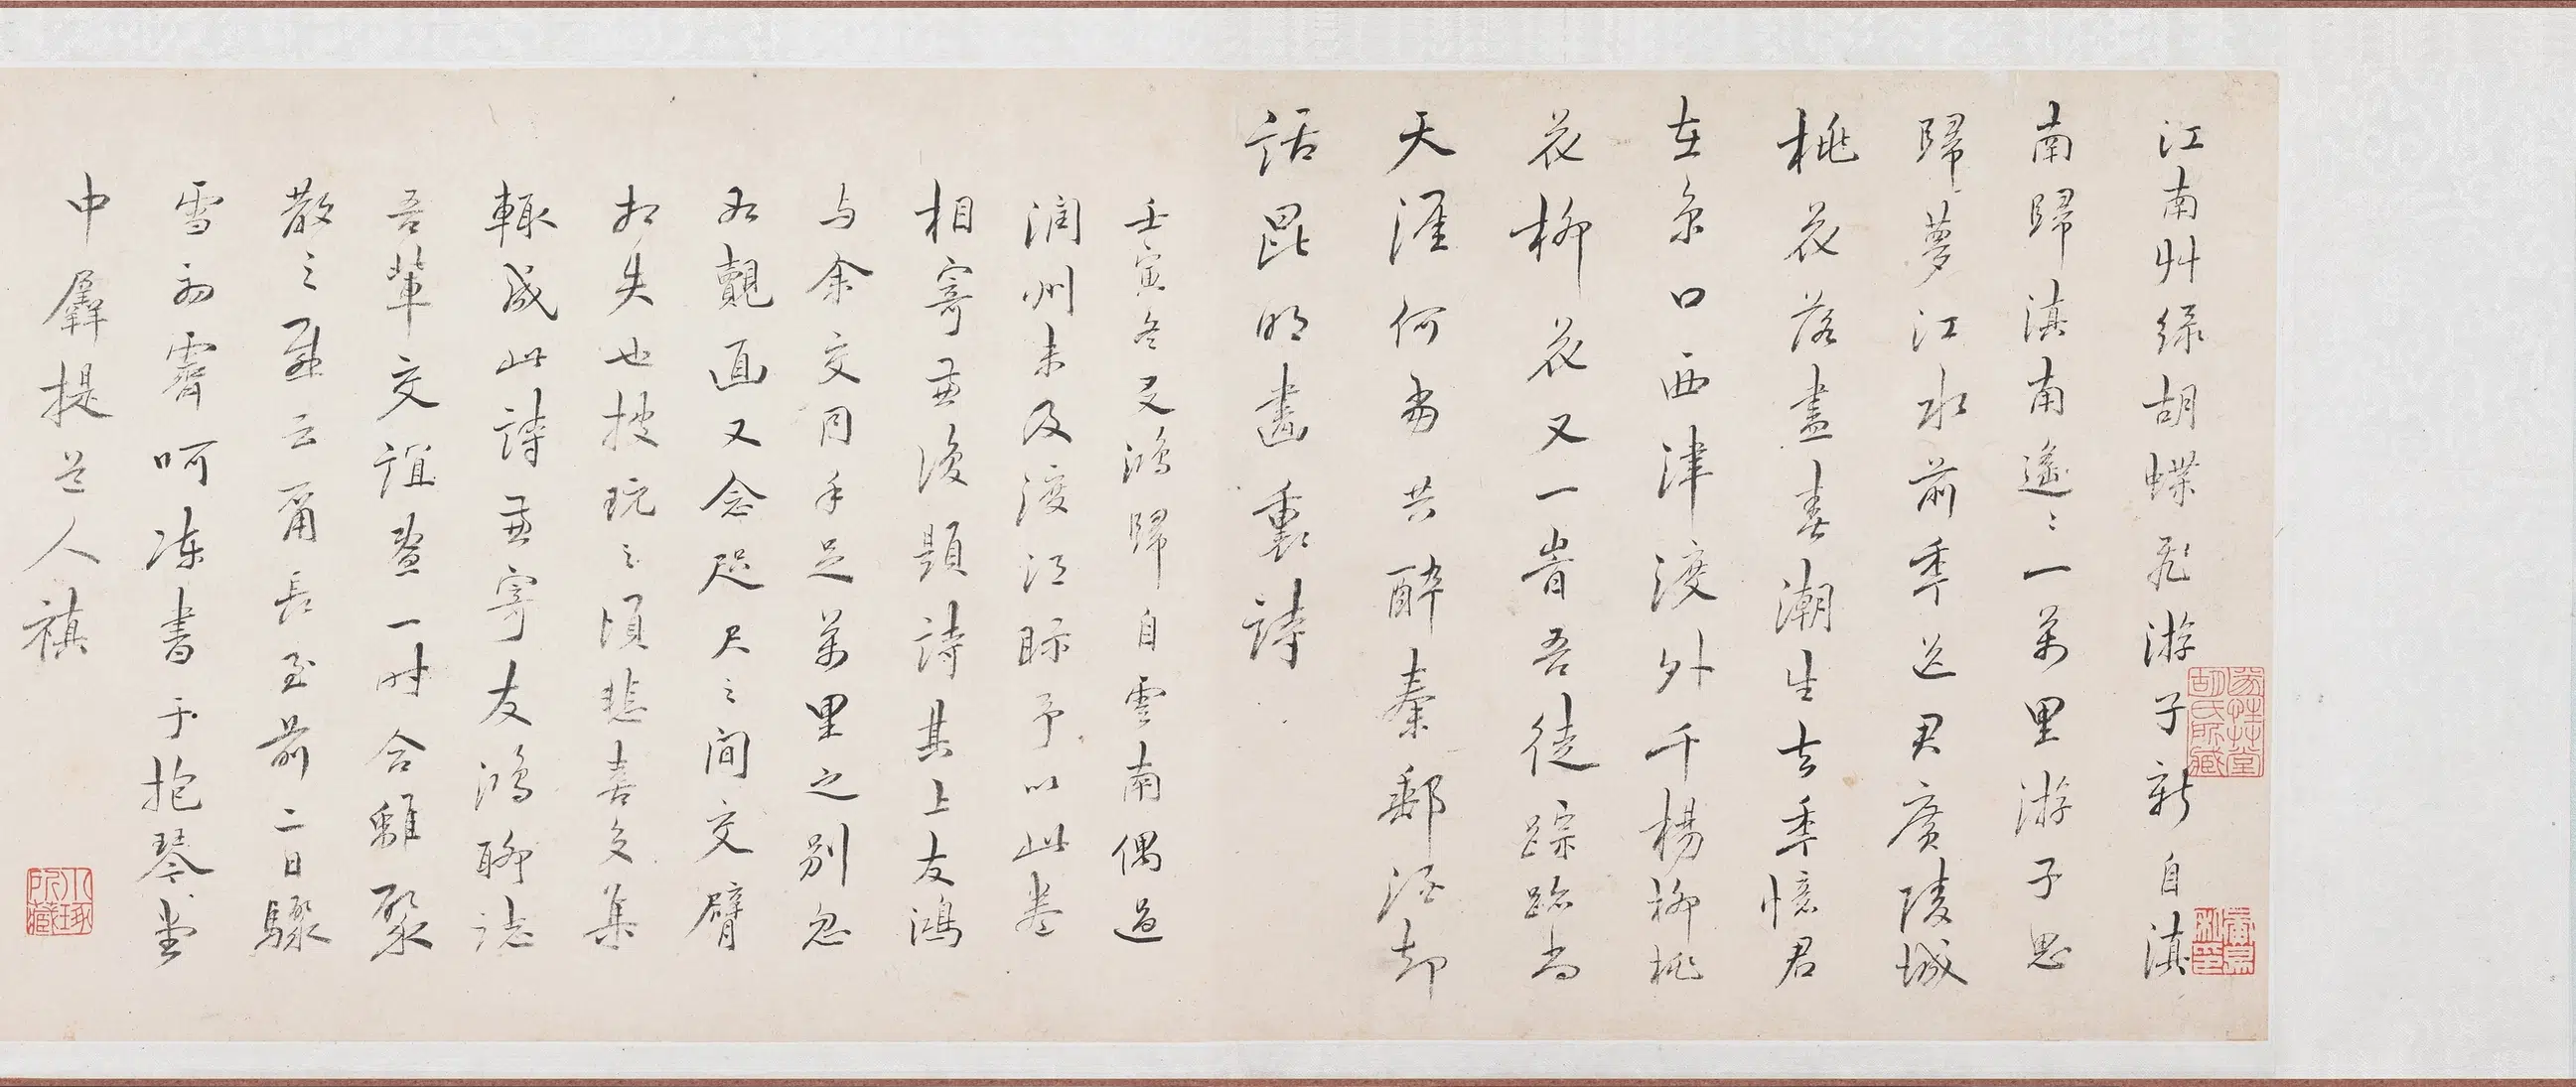 江南艸綠胡蝶飛游子新自滇
南歸滇南遙〻一萬里游子思
歸夢江水前季送君廣陵城
桃花落盡春潮生去季憶君
在京口西津渡外千楊柳桃
花柳花又一旹吾徒踪跡尚
天涯何當共醉秦郵酒却
話昆明畫裏詩
壬寅冬友鴻歸自雲南偶過
潤州未及渡江眎予以此卷
相寄並後題詩其上友鴻
与余交同手足萬里之別忽
為觀面又念咫尺之間交臂
相失也披玩之頃悲喜交集
輙成此詩並寄友鴻聊誌
吾輩交誼盖一时合離聚
散之蹤云爾長至前二日驟
雪初霽呵凍書于抱琴堂
中羼提道人禛